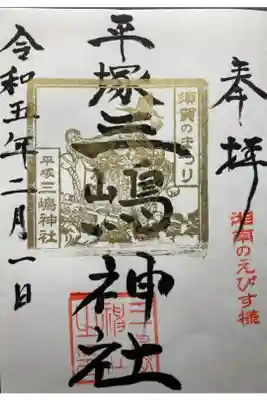 奉拝
湘南のえびす様
平塚三嶋神社
須賀のまつり
平塚三嶋神社
令和五年二月一日